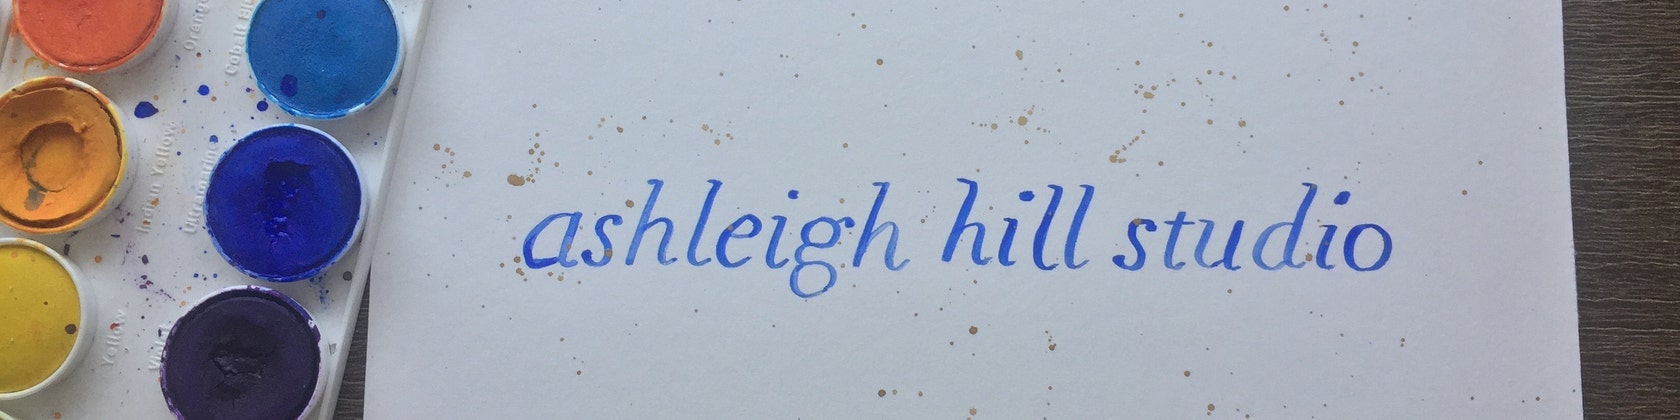 Orange
Cobalt Blue
Indian Yellow
Ultramarine
Yellow
Violet
ashleigh hill studio